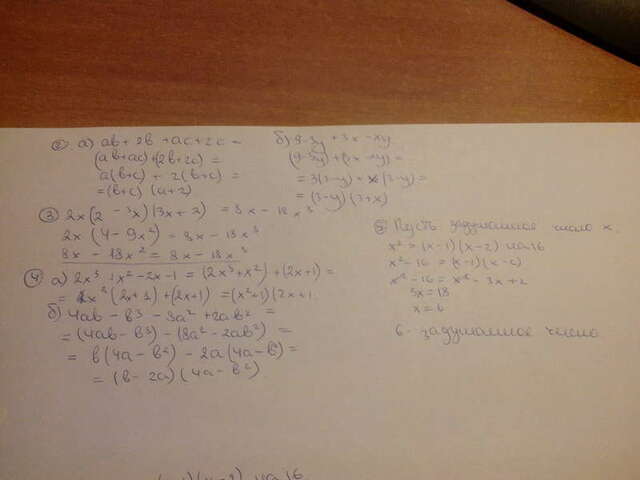 ② а) ab + 2b + ac + 2c =
(ab+ac)+(2b+2c) =
a(b+c) + 2(b+c) =
=(b+c) (a+2)
б) 9-3y + 3x - xy
(9-3y)+(3x-xy) =
= 3(3-y) + x(3-y) =
= (3-y)(3+x)
③ 2x(2-3x)(3x+2) = 8x - 18x³
2x (4-9x²) = 8x - 18x³
8x - 18x² = 8x - 18x³
④ а) 2x³ + x² - 2x - 1 = (2x³+x²)+(2x+1) =
= x² (2x+1) + (2x+1) = (x²+1)(2x+1
б) 4ab - b³ - 8a² + 2ab² =
= (4ab - b³) - (8a² - 2ab²) =
= b(4a - b²) - 2a(4a - b²) =
= (b - 2a)(4a - b²)
⑤ Пусть задуманное число x.
x² > (x-1)(x-2) на 16
x² - 16 = (x-1)(x-2)
x² - 16 = x² - 3x + 2
3x = 18
x = 6
6 - задуманное число
на 16